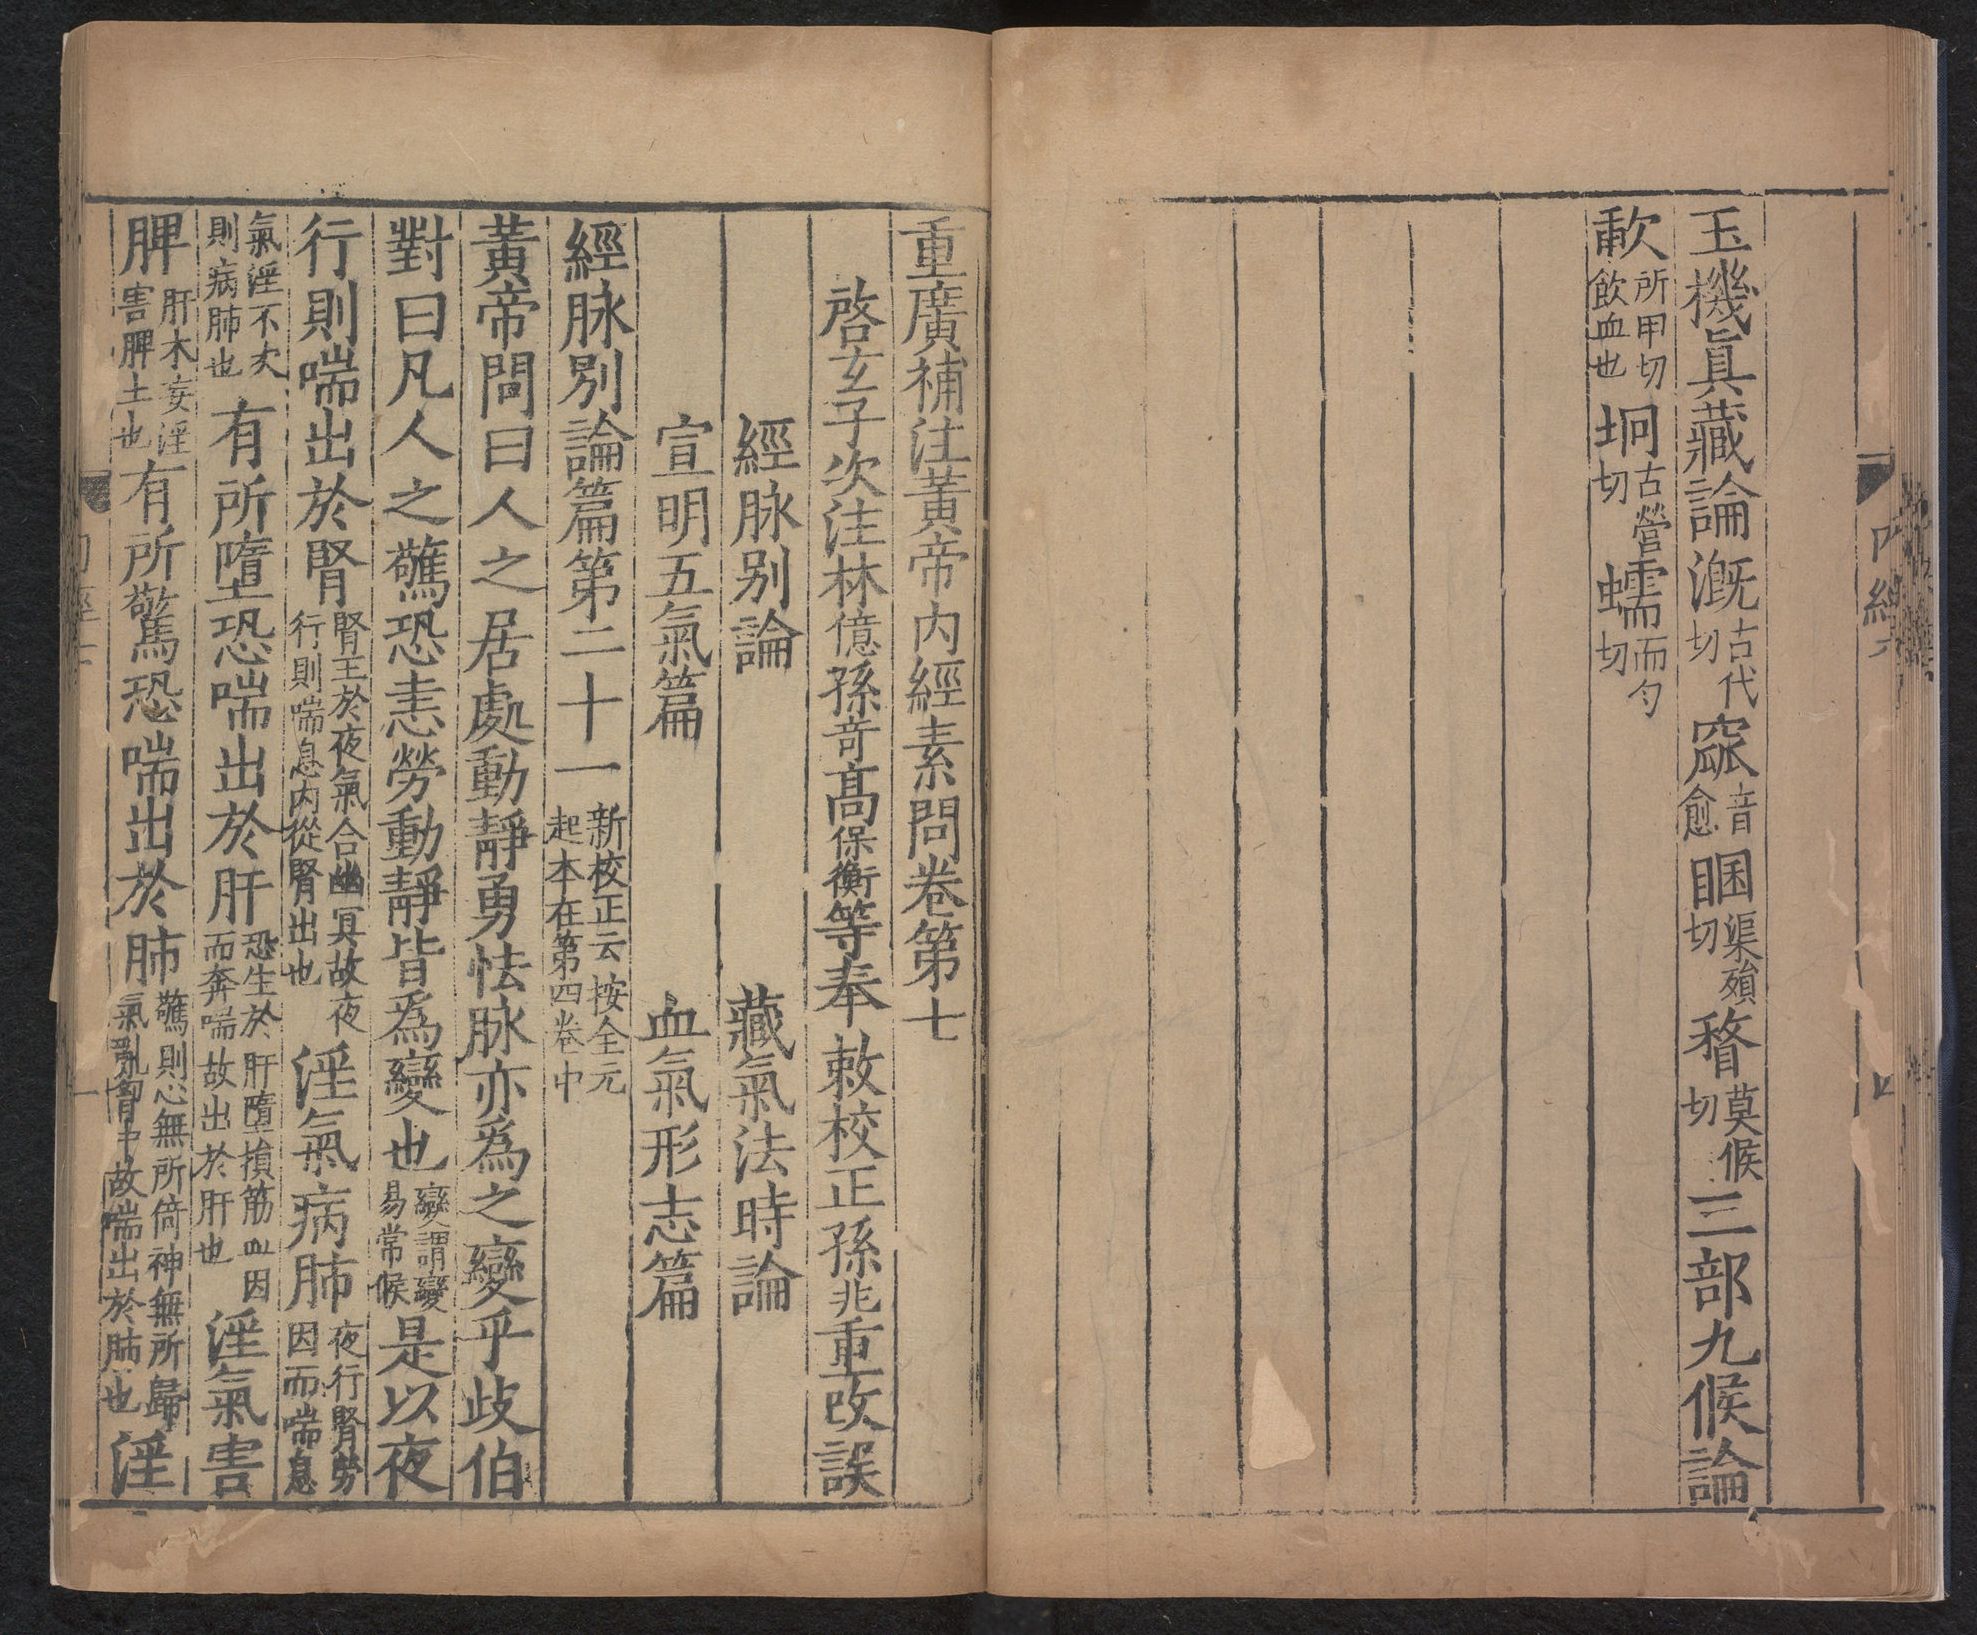 玉機眞藏論溉古代切窳音愈䐃渠殞切瞀莫候切三部九候論
歃所甲切飲血也坰古營切蠕而勺切
内經六
重廣補注黃帝内經素問卷第七
啓玄子次注林億孫竒髙保衡等奉敕校正孫兆重改誤
經脉别論 藏氣法時論
宣明五氣篇 血氣形志篇
經脉別論篇第二十一新校正云按全元起本在第四卷中
黃帝問曰人之居處動靜勇怯脉亦爲之變乎歧伯
對曰凡人之驚恐恚勞動靜皆爲變也變謂變易常候是以夜
行則喘出於腎腎王於夜氣合幽冥故夜行則喘息内從腎出也淫氣病肺夜行腎勞因而喘息
氣淫不次則病肺也有所墮恐喘出於肝恐生於肝墮損筋血因而奔喘故出於肝也淫氣害
脾肝木妄淫害脾土也有所驚恐喘出於肺驚則心無所倚神無所歸氣亂胷中故喘出於肺也淫